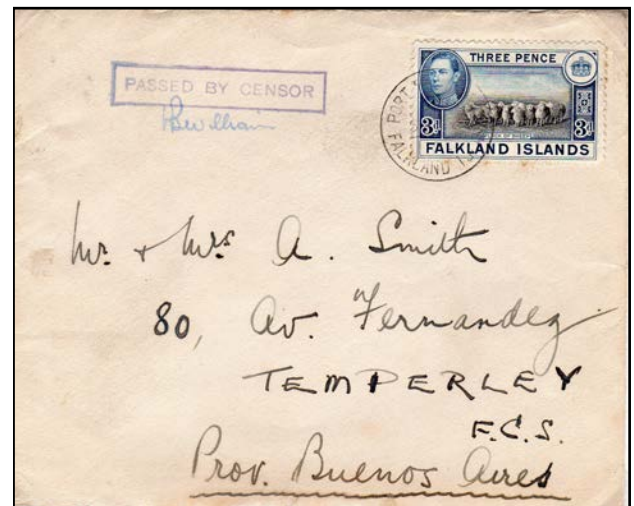 PASSED BY CENSOR
THREE PENCE
3d 3d
FALKLAND ISLANDS
PORT
FALKLAND IS
Mr. & Mrs A. Smith
80, Av. Fernandez
TEMPERLEY
F.C.S.
Prov. Buenos Aires